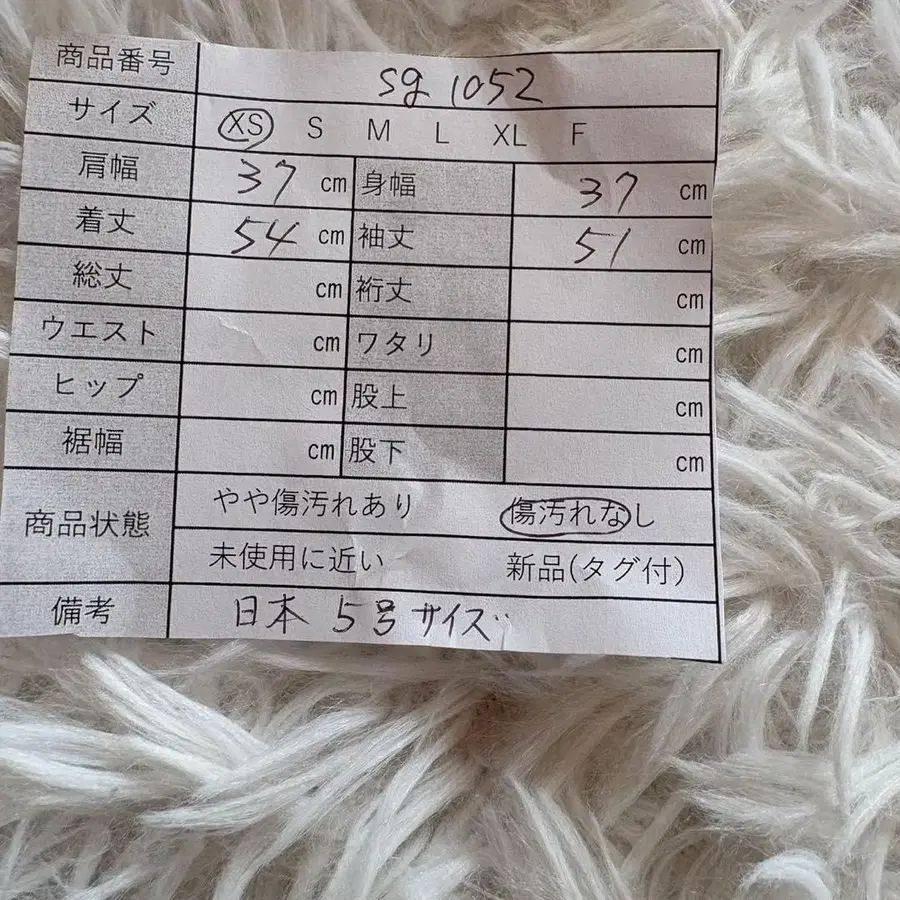 商品番号 sg 1052
サイズ XS S M L XL F
肩幅 37 cm 身幅 37 cm
着丈 54 cm 袖丈 51 cm
総丈 cm 裄丈 cm
ウエスト cm ワタリ cm
ヒップ cm 股上 cm
裾幅 cm 股下 cm
商品状態 やや傷汚れあり 傷汚れなし
未使用に近い 新品(タグ付)
備考 日本 5号サイズ